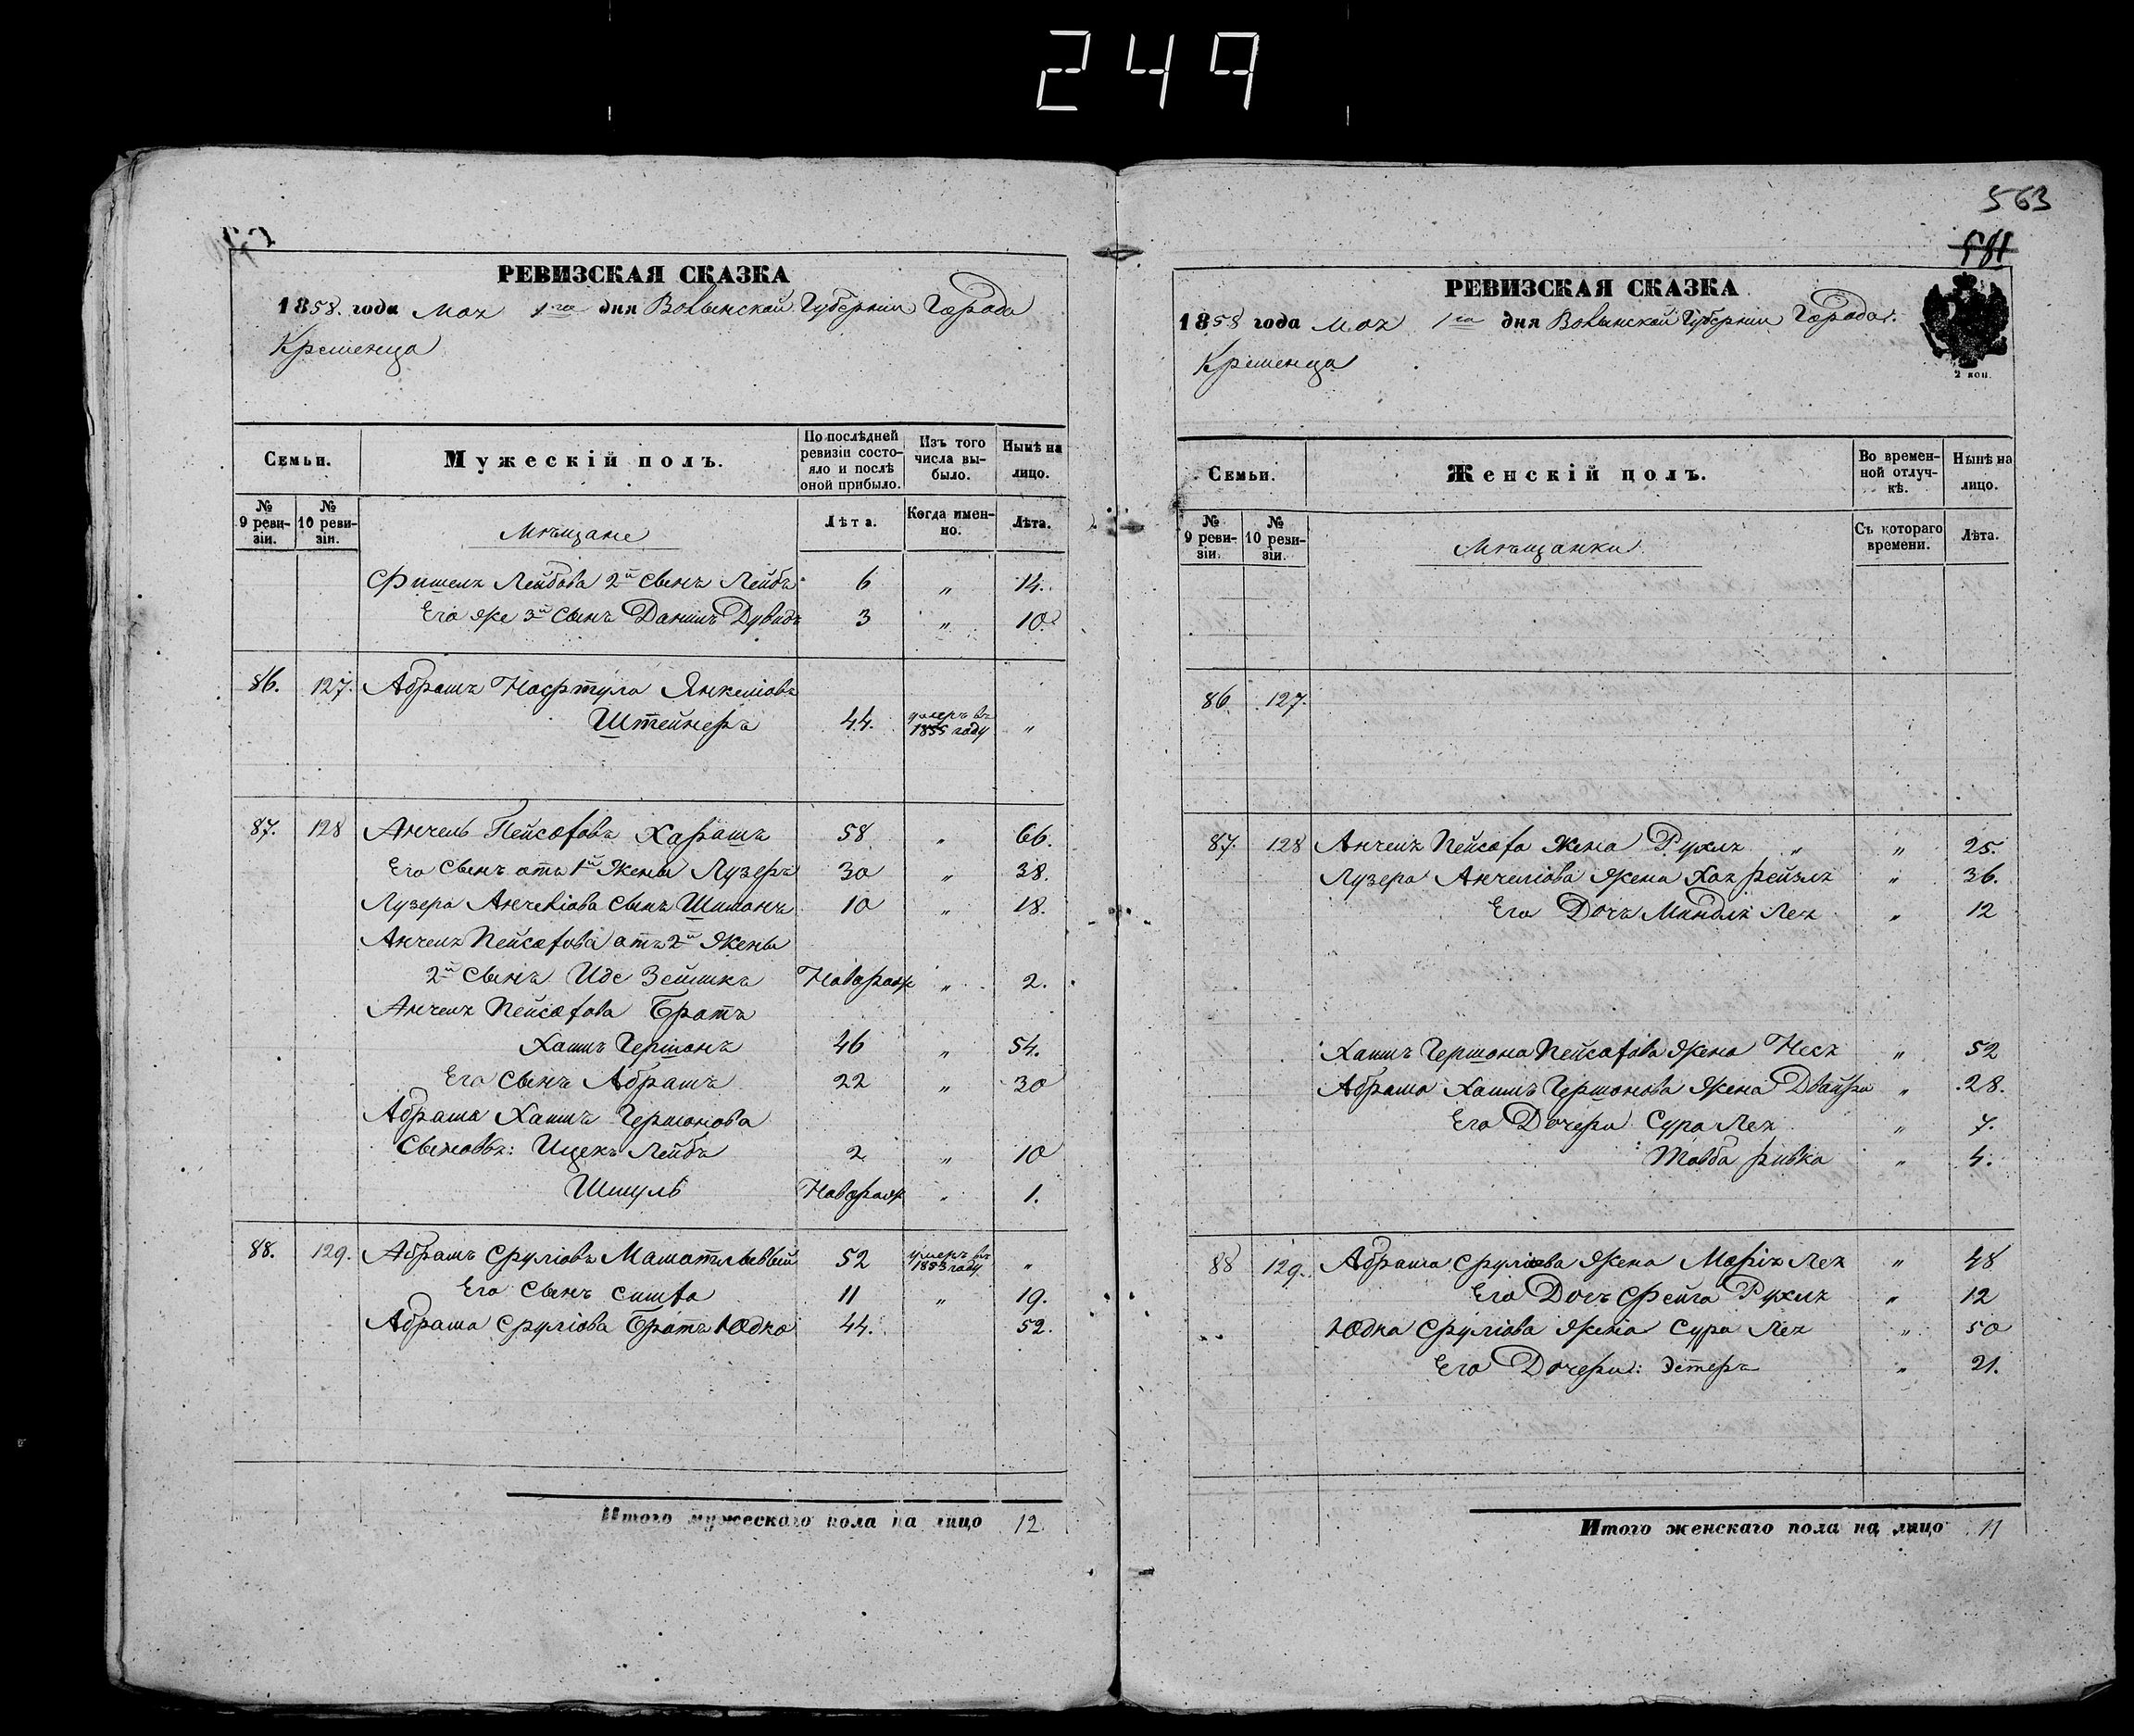 249
РЕВИЗСКАЯ СКАЗКА
1858. года Мая 1го дня Волынской Губерніи Города
Кременца
Семьи.
Мужескій полъ.
По послѣдней ревизіи состояло и послѣ оной прибыло.
Изъ того числа выбыло.
Нынѣ на лицо.
№ 9 ревизіи.
№ 10 ревизіи.
Мѣщане
Лѣта.
Когда именно.
Лѣта.
Фишеля Лейбова 2й сынъ Лейбъ 6 „ 14.
Его же 3й сынъ Данилъ Дувидъ 3 „ 10
86. 127. Абрамъ Нафтула Янкеліовъ
Штейнеръ 44. умеръ въ 1855 году „
87. 128 Анчель Пейсаховъ Харашъ 58 „ 66.
Его сынъ отъ 1й жены Лузеръ 30 „ 38.
Лузера Анчеліова сынъ Шимонъ 10 „ 18.
Анчеля Пейсахова отъ 2й жены
2й сынъ Иде Зейликъ Новорож „ 2.
Анчеля Пейсахова Братъ
Хаимъ Гершонъ 46 „ 54.
Его сынъ Абрамъ 22 „ 30
Абрама Хаимъ Гершонова
Сыновья: Ицекъ Лейбъ 2 „ 10
Шмуль Новорож „ 1.
88. 129. Абрамъ Сруліовъ 52 умеръ въ 1853 году „
Его сынъ Симха 11 „ 19.
Абрама Сруліова Братъ Юдко 44. 52.
Итого мужескаго пола на лицо 12.
563
581
РЕВИЗСКАЯ СКАЗКА
1858 года Мая 1го дня Волынской Губерніи Города
Кременца
2 коп.
Семьи.
Женскій полъ.
Во временной отлучкѣ.
Нынѣ на лицо.
№ 9 ревизіи.
№ 10 ревизіи.
Мѣщанки
Съ котораго времени.
Лѣта.
86. 127.
87. 128 Анчеля Пейсаха жена Рухля „ „ 25.
Лузера Анчеліова жена Хая Рейзля „ 36.
Его Дочь Миндля Лея „ 12
Хаимъ Гершона Пейсахова жена Неся „ 52
Абрама Хаимъ Гершонова жена Двойра „ 28.
Его Дочери Сура Лея „ 7.
Товба Ривка „ 4.
88 129. Абрама Сруліова жена Марія Лея „ 48
Его Дочь Фейга Рухля „ 12
Юдка Сруліова жена Сура Лея „ 50
Его Дочери: Эстеръ „ 21.
Итого женскаго пола на лицо 11